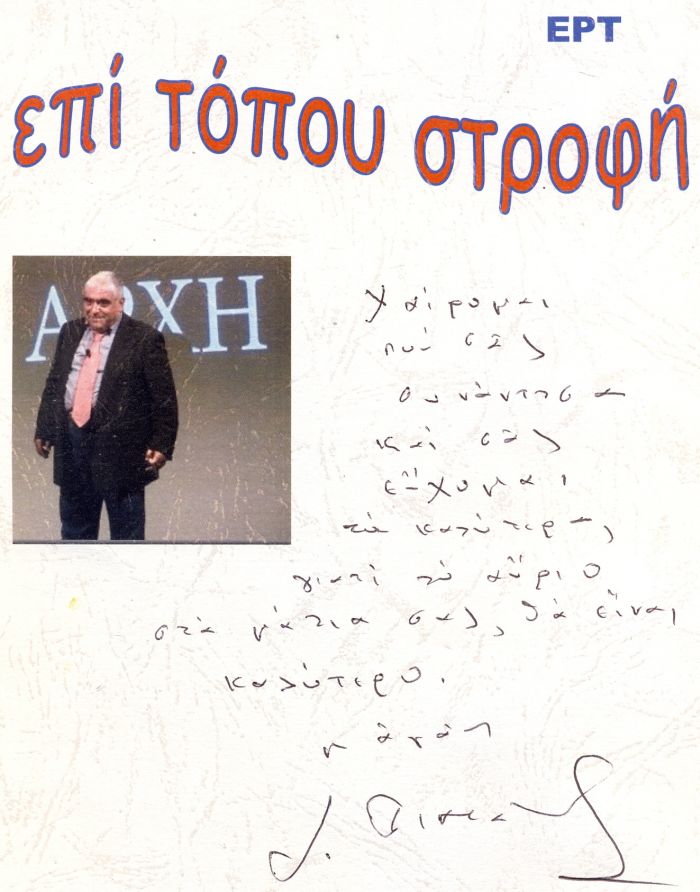 ΕΡΤ
επί τόπου στροφή
ΑΡΧΗ
Χαίρομαι
ποὺ σᾶς
συνάντησα
καὶ σᾶς
εὔχομαι
τὰ καλύτερα,
γιατὶ τὸ αὔριο
στὰ μάτια σας, θὰ εἶναι
καλύτερο.
μ' ἀγάπη